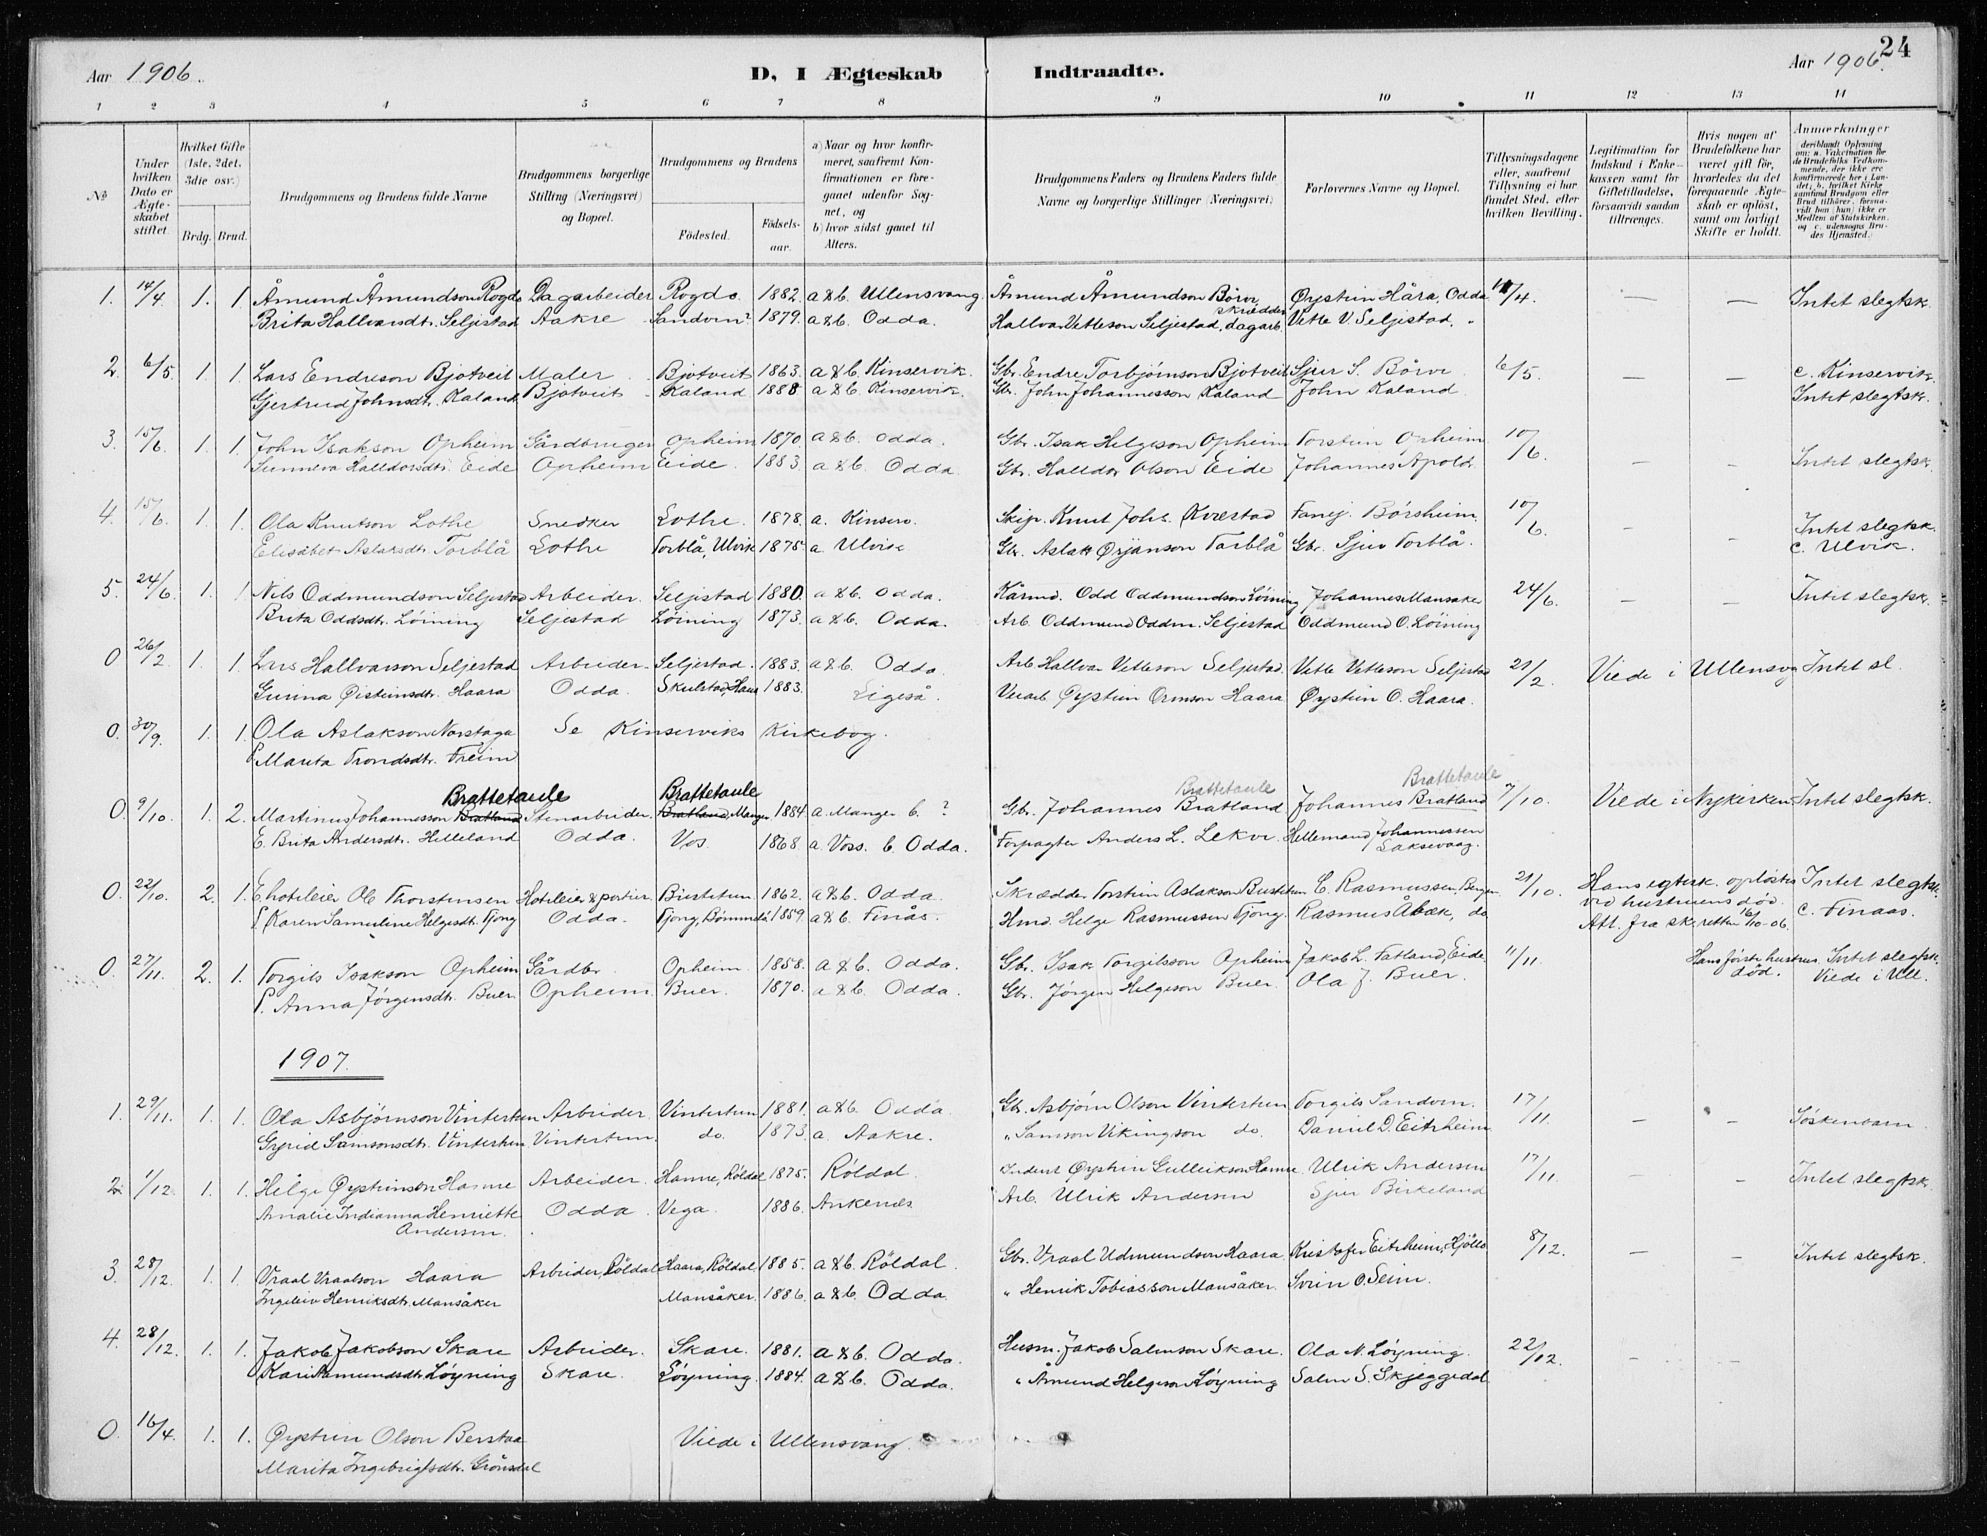 24
Aar 1906. D, I Ægteskab Indtraadte. Aar 1906.
1 2 3 4 5 6 7 8 9 10 11 12 13 14
No
Under hvilken Dato er Ægteskabet stiftet.
Hvilket Gifte (1ste, 2det, 3die osv.)
Brdg. Brud.
Brudgommens og Brudens fulde Navne
Brudgommens borgerlige Stilling (Næringsvei) og Bopæl.
Brudgommens og Brudens
Fødested. Fødselsaar.
a) Naar og hvor konfirmeret, saafremt Konfirmationen er foregaaet udenfor Sognet, og b) hvor sidst gaaet til Alters.
Brudgommens Faders og Brudens Faders fulde Navne og borgerlige Stillinger (Næringsvei)
Forlovernes Navne og Bopæl.
Tillysningsdagene eller, saafremt Tillysning ei har fundet Sted, efter hvilken Bevilling.
Legitimation for Indskud i Enkekassen samt for Giftetilladelse, forsaavidt saadan tiltrænges.
Hvis nogen af Brudefolkene har været gift før, hvorledes da det foregaaende Ægteskab er opløst, samt om lovligt Skifte er holdt.
Anmerkninger deriblandt Oplysning om: a. Vakcination for de Brudefolks Vedkommende, der ikke ere konfirmerede her i Landet; b. hvilket Kirkesamfund Brudgom eller Brud tilhører, forsaavidt han (hun) ikke er Medlem af Statskirken, og c. udensogns Brudes Hjemsted.)
1. 14/4. 1. 1. Åmund Åmundson Rogde Dagarbeider Rogde. 1882. a & b. Ullensvang. Åmund Åmundson Börve, skrædder Øystein Håra, Odda 14/4. — — Intet slegtsk.
Brita Hallvardsdtr. Seljestad Aakre Sandven? 1879. a & b. Odda. Hallvar Vetteson Seljestad, dagarb. Vette V. Seljestad. "
2. 6/5. 1. 1. Lars Endreson Bjotveit Maler Bjotveit 1863. a & b. Kinservik. Gbr. Endre Torbjørnson Bjotveit Sjur S. Börve 6/5. — — c. Kinservik.
Gjertrud Johnsdtr. Kaland Bjotveit Kaland 1888 a & b. Kinservik. Gbr. John Johannesson Kaland John Kaland Intet slegtsk.
3. 15/6. 1. 1. John Isakson Opheim Gårdbruger Opheim 1870 a & b. Odda. Gbr. Isak Helgeson Opheim Torstein Opheim 10/6. — — Intet slegtsk.
Sunneva Halldorsdtr. Eide Opheim Eide. 1883. a & b. Odda. Gbr. Halldor Olson Eide Johannes Apold.
4. 15/6. 1. 1. Ola Knutson Lothe Snedker Lothe. 1878. a. Kinserv. Skip. Knut Johs. Kvæstad Fanej. Börsheim. 10/6. — — Intet slegtsk.
Elisabet Aslaksdtr. Torblå Lothe Torblå, Ulvik 1875. a Ulvik Gbr. Aslak Ørjanson Torblå Gbr. Sjur Torblå. c. Ulvik.
5. 24/6. 1. 1 Nils Oddmundson Seljestad Arbeider. Seljestad 1880. a & b. Odda. Kårmd. Odd Oddmundson Löining Johannes Mansaker 24/6. — — Intet slegtsk.
Brita Oddsdtr. Löining Seljestad Löining 1873. a & b. Odda. Arb. Oddmund Oddm. Seljestad Oddmund O. Löining
0 26/2 1. 1. Lars Hallvarson Seljestad Arbeider. Seljestad. 1883. a & b. Odda. Arb. Hallvar Vetteson Seljestad. Vette Vetteson Seljestad 21/2. Viede i Ullensvg Intet sl.
Gunna Øisteinsdtr. Haara Odda. Skulstad, Haus 1883. Ligeså. Veiarb. Øystein Ormson Haara Øystein O. Haara.
0. 30/9. 1. 1. Ola Aslakson Norstaga Se Kinserviks Kirkebog.
P Marita Trondsdtr. Freim
Brattetaule Brattetaule Brattetaule Brattetaule
0. 9/10. 1. 2. Martinus Johannesson Bratland Stenarbeider. Bratland, Manger 1884. a. Manger b. ? Gbr. Johannes Bratland Johannes Bratland 7/10. Viede i Nykirken Intet slegtsk.
E. Brita Andersdtr. Helleland Odda. Vos 1868. a. Voss. b. Odda. Forpagter Anders L. Lekve. Hellemand Johannessen Laksevaag.
0. 22/10. 2. 1. E. hoteleier Ole Thorstensen Hoteleier & portier Bustetun 1862. a & b. Odda. Skrædder Torstein Aslakson Bustetun C. Rasmussen, Bergen 21/10. Hans egtesk. opløstes ved hustruens død. Att. fra skifteretten 16/10-06. Intet slegtsk.
P. Karen Samueline Helgesdtr. Tjong Odda. Tjong, Bömmelö 1859. a & b. Finås. Hmd. Helge Rasmussen Tjong. Rasmus Åbæk, do c. Finaas.
0. 27/11. 2. 1. Torgils Isakson Opheim Gårdbr. Opheim. 1858. a & b. Odda. Gbr. Isak Torgilsson Opheim Jakob L. Tatland, Eide. 11/11. Hans første hustru død. Intet slegtsk.
P. Anna Jørgensdtr. Buer. Opheim. Buer. 1870. a & b. Odda. Gbr. Jørgen Helgeson Buer. Ola J. Buer. Viede i Ull.
1907.
1. 29/11. 1. 1. Ola Asbjørnson Vintertun Arbeider. Vintertun 1881. a & b. Odda. Gbr. Asbjörn Olson Vintertun Torgils Sandven. 17/11. — — Søskenbarn.
Gyrid Samsonsdtr. Vintertun. Vintertun. do. 1873. a. Aakre. " Samson Vikingson do. Daniel D. Eitrheim
2. 1/12. 1. 1. Helge Øysteinson Hamre Arbeider. Hamre, Röldal 1875. Röldal. Inderst Øystein Gulleikson Hamre. Ulrik Andersen 17/11. — — Intet slegtsk.
Amalie Indianna Henriette Andersen. Odda. Vega. 1886. Ankenæs Arb. Ulrik Andersen Sjur Birkeland
3. 28/12. 1. 1. Vraal Vraalson Haara Arbeider, Röldal Haara, Röldal. 1885. a & b. Röldal. Gbr. Vraal Udmundson Haara Kristofer Eitrheim, Hjöllo 8/12. — — Intet slegtsk.
Ingeleiv Henriksdtr. Mansåker Mansåker. 1886. a & b. Odda. " Henrik Tobiasson Mansåker. Svein O. Seim.
4. 28/12. 1. 1. Jakob Jakobson Skare Arbeider. Skare. 1881. a & b. Odda. Husm. Jakob Salmson Skare. Ola N. Löyning. 22/12. — —
Kari Aamundsdtr. Löyning Skare. Löyning. 1884. a & b. Odda. " Åmund Helgeson Löyning Salm S. Skjeggedal
0. 16/4. 1. 1. Øystein Olson Berstaa Viede i Ullensvang.
Marita Ingebrigtsdtr. Grönsdal